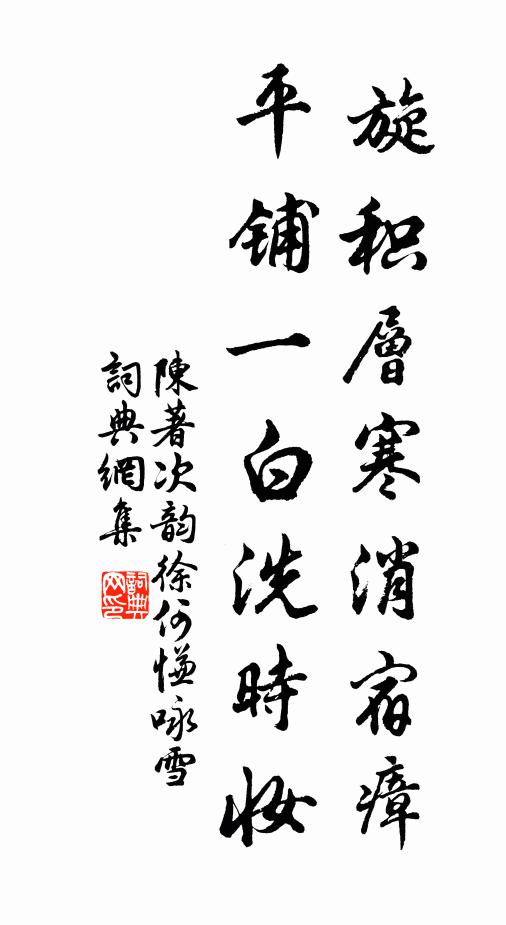 旋积層寒消宿瘴
平铺一白洗時妝
陳著次韵徐何慊咏雪
詞典網集
詞典网印